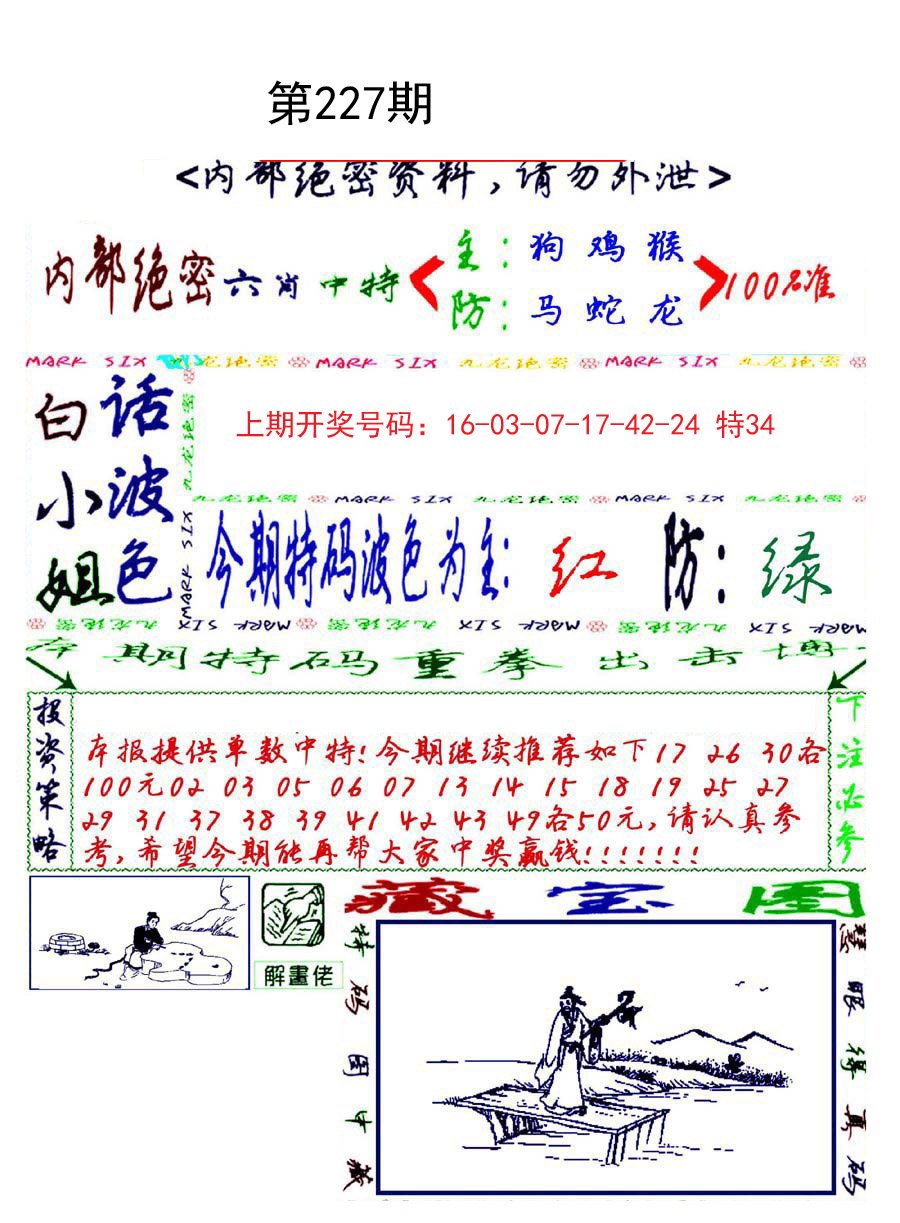 第227期
<内部绝密资料,请勿外泄>
内部绝密六肖中特
主:狗 鸡 猴
防:马 蛇 龙
100%准
MARK SIX 九龙绝密 MARK SIX 九龙绝密 MARK SIX 九龙绝密
白话
小波
姐色
九龙绝密
MARK SIX
上期开奖号码：16-03-07-17-42-24 特34
九龙绝密 MARK SIX 九龙绝密 MARK SIX 九龙绝密
今期特码波色为主: 红 防: 绿
九龙绝密 MARK SIX 九龙绝密 MARK SIX 九龙绝密 MARK SIX
本期特码重拳出击博一
投资策略
本报提供单数中特!今期继续推荐如下17 26 30各
100元02 03 05 06 07 13 14 15 18 19 25 27
29 31 37 38 39 41 42 43 49各50元,请认真参
考,希望今期能再帮大家中奖赢钱!!!!!!!
下注必参
解畫佬
藏宝图
特码图中藏
慧眼得真码